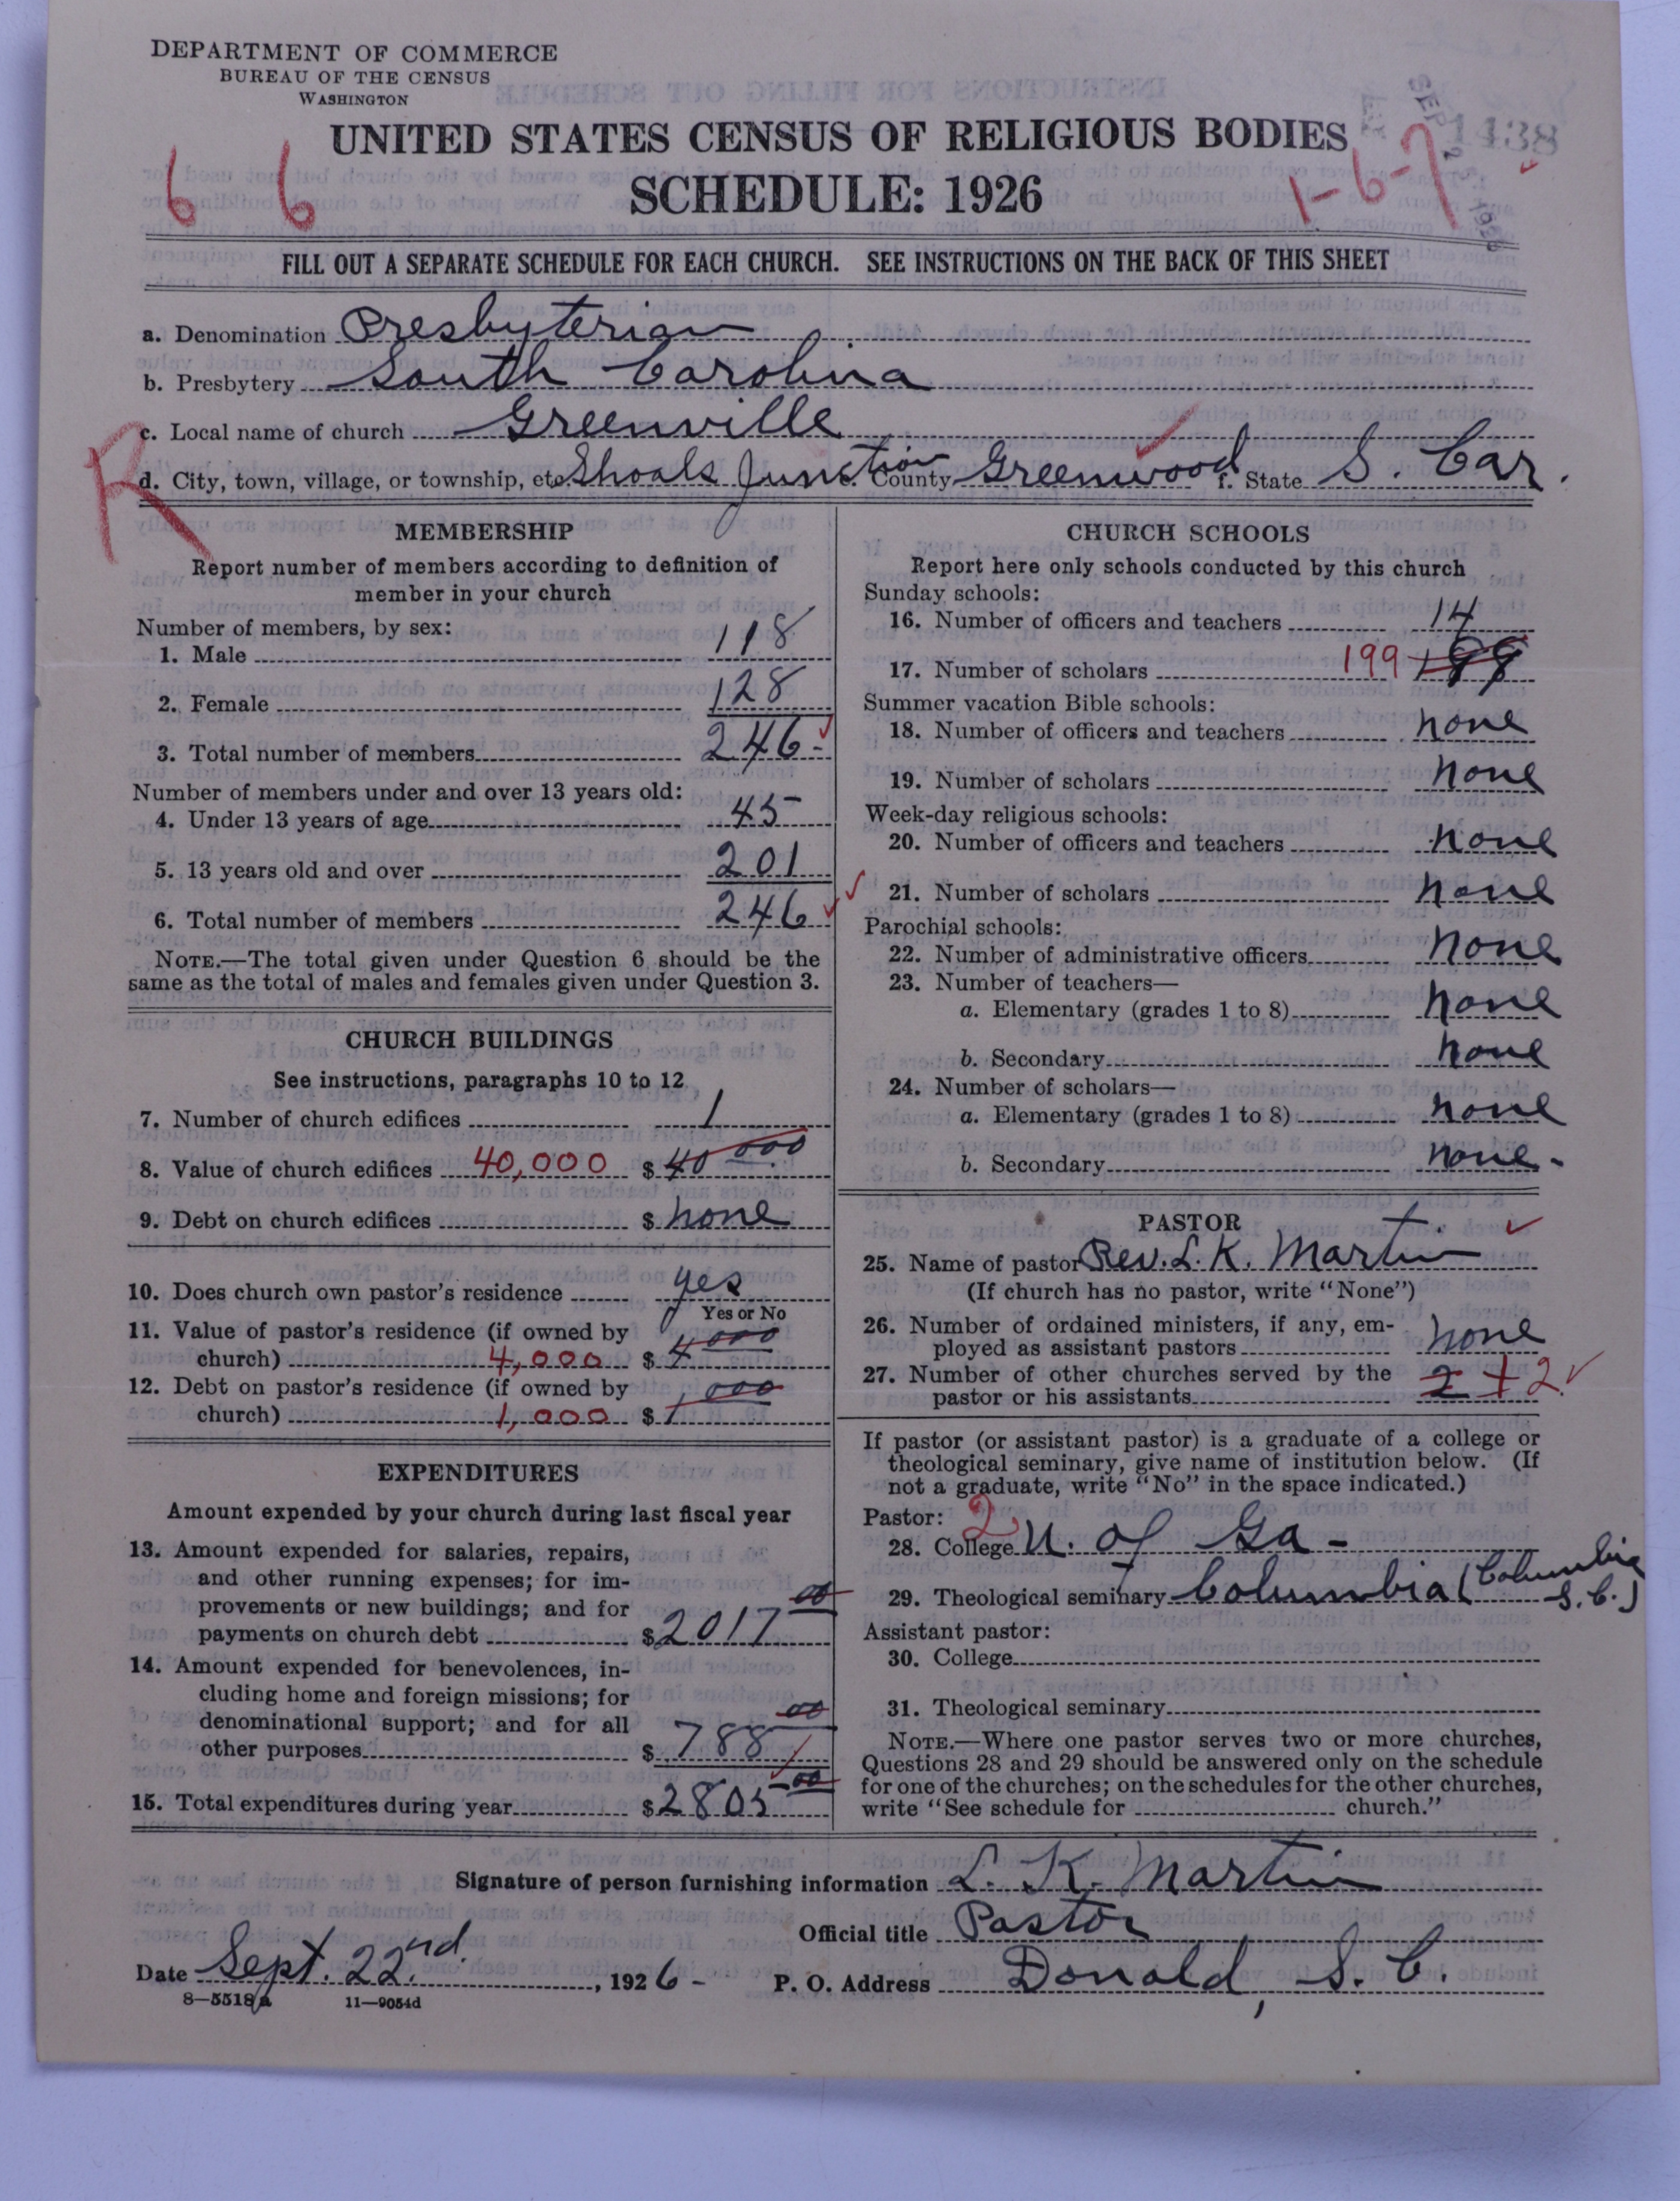 DEPARTMENT OF COMMERCE
BUREAU OF THE CENSUS
WASHINGTON
UNITED STATES CENSUS OF RELIGIOUS BODIES
SCHEDULE: 1926
6 6
1-6-7
1138
FILL OUT A SEPARATE SCHEDULE FOR EACH CHURCH. SEE INSTRUCTIONS ON THE BACK OF THIS SHEET
a. Denomination Presbyterian
b. Presbytery South Carolina
c. Local name of church Greenville
R
d. City, town, village, or township, etc. Shoals Junction County Greenwood f. State S. Car.
MEMBERSHIP
Report number of members according to definition of
member in your church
Number of members, by sex:
1. Male 118
2. Female 128
3. Total number of members 246-
Number of members under and over 13 years old:
4. Under 13 years of age 45
5. 13 years old and over 201
6. Total number of members 246
NOTE.—The total given under Question 6 should be the
same as the total of males and females given under Question 3.
CHURCH BUILDINGS
See instructions, paragraphs 10 to 12
7. Number of church edifices 1
8. Value of church edifices 40,000 $ 40 000
9. Debt on church edifices $ none
10. Does church own pastor's residence yes
Yes or No
11. Value of pastor's residence (if owned by
church) 4,000 $ 4 000
12. Debt on pastor's residence (if owned by
church) 1,000 $ 1,000
EXPENDITURES
Amount expended by your church during last fiscal year
13. Amount expended for salaries, repairs,
and other running expenses; for im-
provements or new buildings; and for
payments on church debt $ 2017 00
14. Amount expended for benevolences, in-
cluding home and foreign missions; for
denominational support; and for all
other purposes $ 788 00
15. Total expenditures during year $ 2805 00
CHURCH SCHOOLS
Report here only schools conducted by this church
Sunday schools:
16. Number of officers and teachers 14
17. Number of scholars 199 199
Summer vacation Bible schools:
18. Number of officers and teachers none
19. Number of scholars none
Week-day religious schools:
20. Number of officers and teachers none
21. Number of scholars none
Parochial schools:
22. Number of administrative officers none
23. Number of teachers—
a. Elementary (grades 1 to 8) none
b. Secondary none
24. Number of scholars—
a. Elementary (grades 1 to 8) none
b. Secondary none-
PASTOR
25. Name of pastor Rev. L. K. Martin
(If church has no pastor, write "None")
26. Number of ordained ministers, if any, em-
ployed as assistant pastors none
27. Number of other churches served by the
pastor or his assistants 2 + 2
If pastor (or assistant pastor) is a graduate of a college or
theological seminary, give name of institution below. (If
not a graduate, write "No" in the space indicated.)
Pastor: 2
28. College U. of Ga -
29. Theological seminary Columbia (Columbia
S. C.)
Assistant pastor:
30. College
31. Theological seminary
NOTE.—Where one pastor serves two or more churches,
Questions 28 and 29 should be answered only on the schedule
for one of the churches; on the schedules for the other churches,
write "See schedule for church."
Signature of person furnishing information L. K. Martin
Official title Pastor
Date Sept. 22nd, 1926- P. O. Address Donald, S. C.
8—5518 a 11—9054d